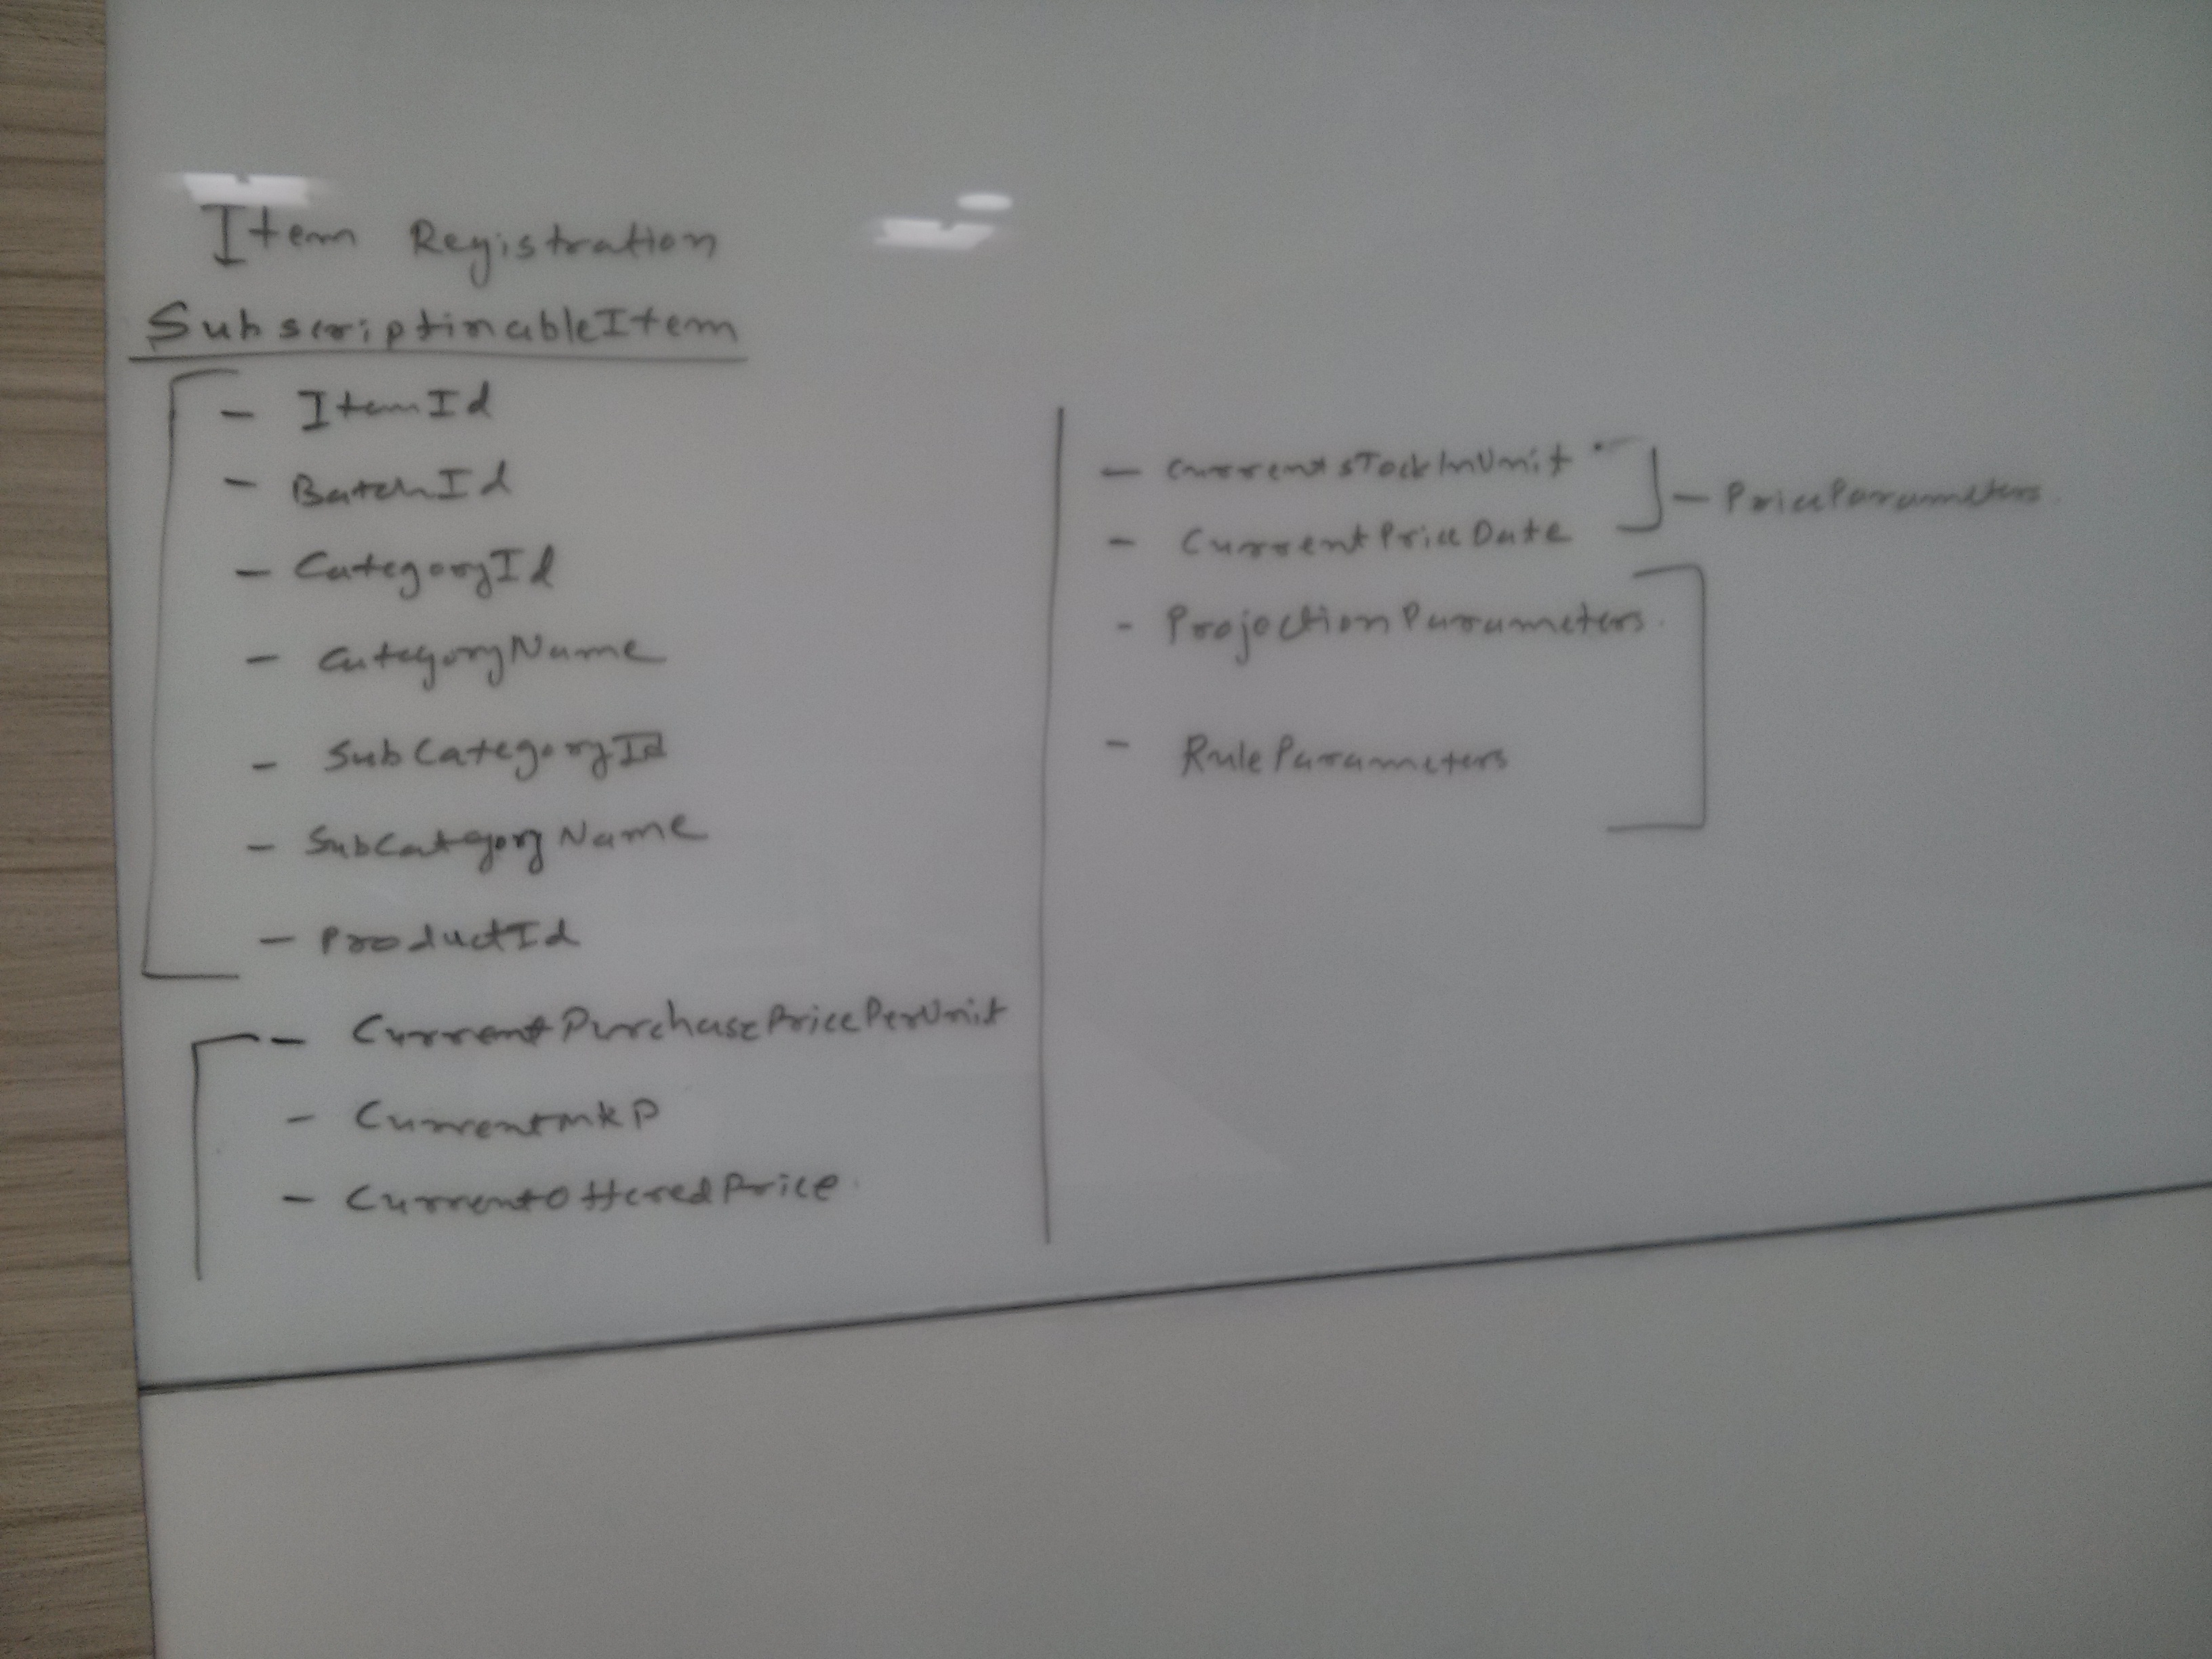 Item Registration
SubscriptinableItem
- ItemId
- BatchId
- CategoryId
- CategoryName
- SubCategoryId
- SubCategoryName
- ProductId
- CurrentPurchasePricePerUnit
- CurrentMRP
- CurrentOfferedPrice
- CurrentsTockInUnit
- PriceParameters
- CurrentPriceDate
- ProjectionParameters
- RuleParameters